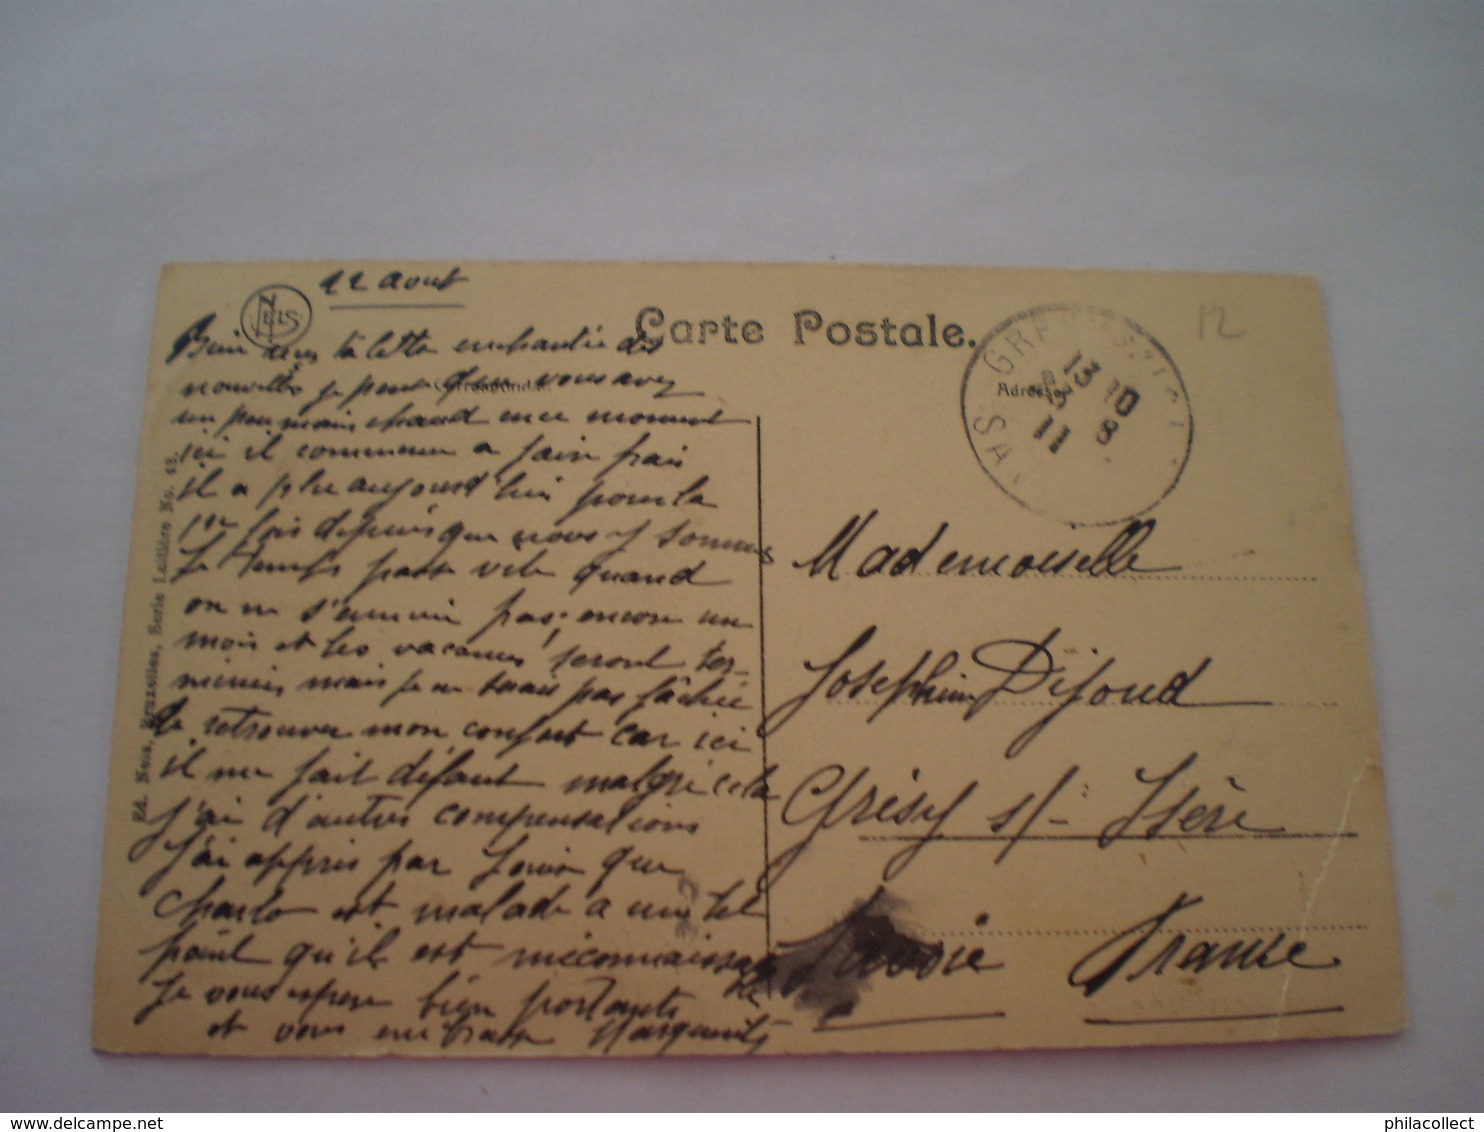 11 aout
NELS
Carte Postale.
Adresse
12
Bien reçu ta lettre enchantée des
nouvelles je pense que vous avez
un peu moins chaud en ce moment
ici il commence a faire frais
il a plu aujourd'hui pour la
1ere fois depuis que nous y sommes
Le temps passe vite quand
on ne s'ennuie pas; encore un
mois et les vacances seront ter-
minées mais je ne serais pas fâchée
de retrouver mon confort car ici
il me fait défaut malgré cela
j'ai d'autres compensations
J'ai appris par Louis que
Charlo est malade a un tel
point qu'il est méconnaissable
Je vous espère bien portants
et vous embrasse Marguerite
Ed. Nels, Bruxelles, Serie Laitière No. 12.
GRE
SA
13 10
11 8
Mademoiselle
Josephine Dijoud
Grésy s/- Isère
Savoie France
philacollect